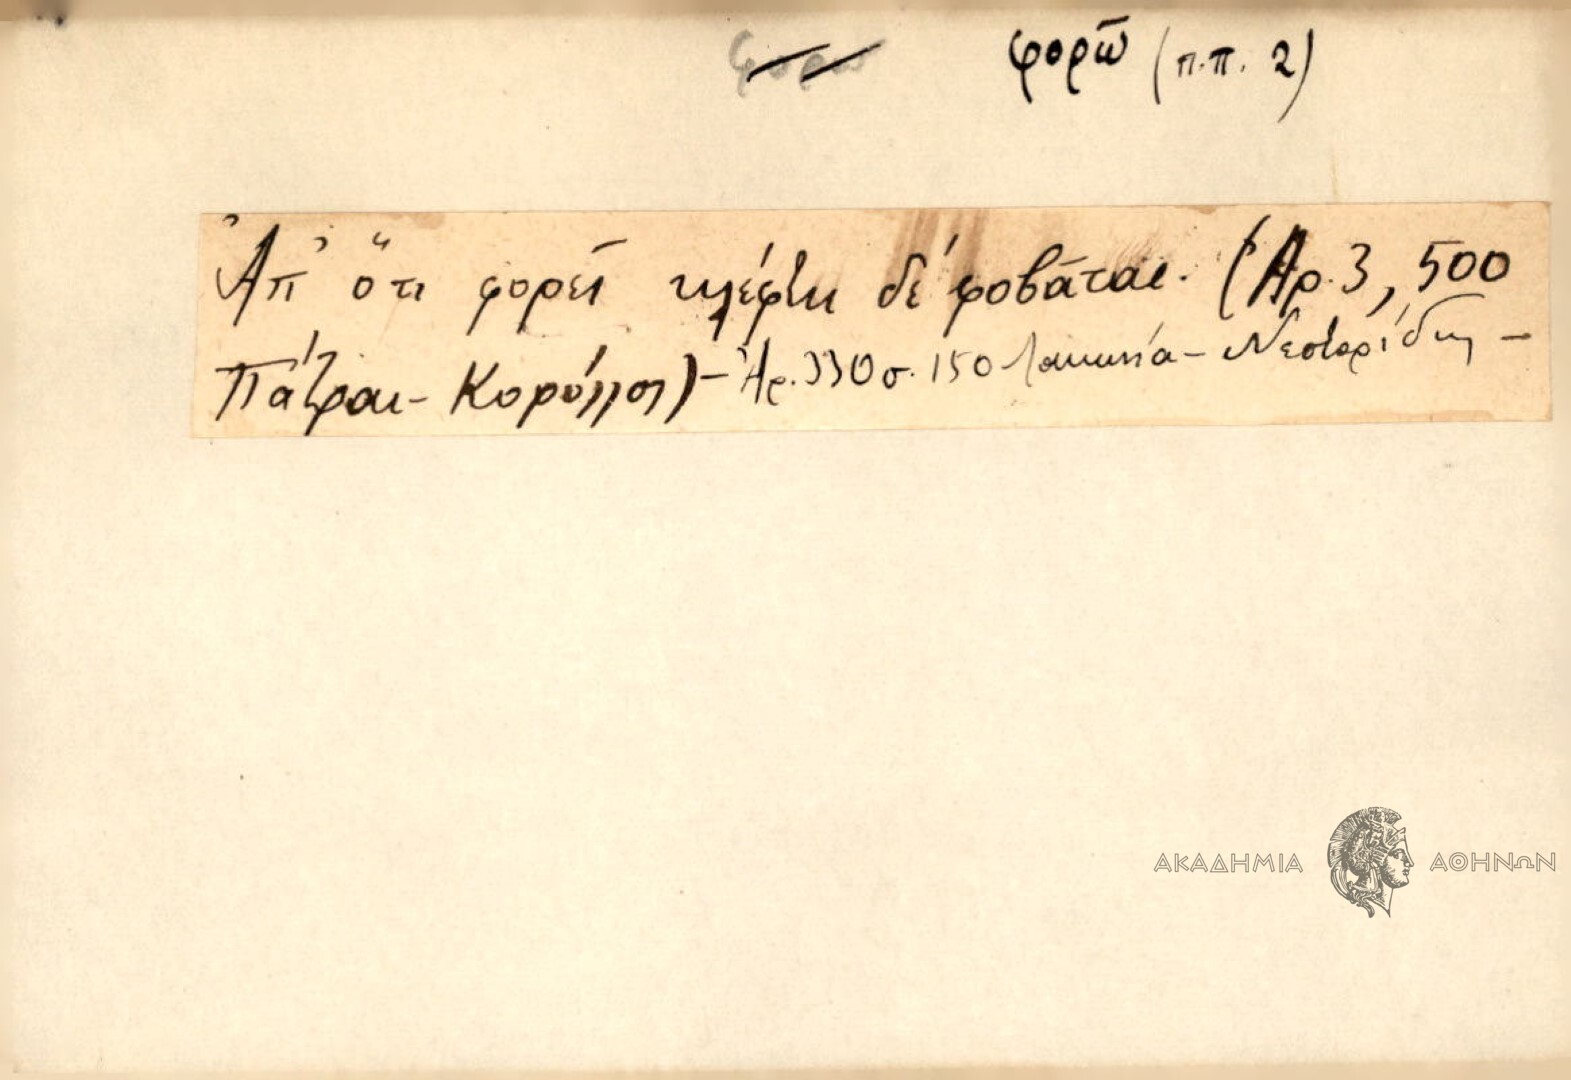 φορῶ φορῶ (π.π. 2)
Ἀπ' ὅτι φορεῖ κλέφτη δέ φοβᾶται. (Ἀρ. 3, 500
Πάτραι - Κορύλλος) - Ἀρ. 330 σ. 150 Λακωνία - Νεστορίδης -
ΑΚΑΔΗΜΙΑ ΑΘΗΝΩΝ